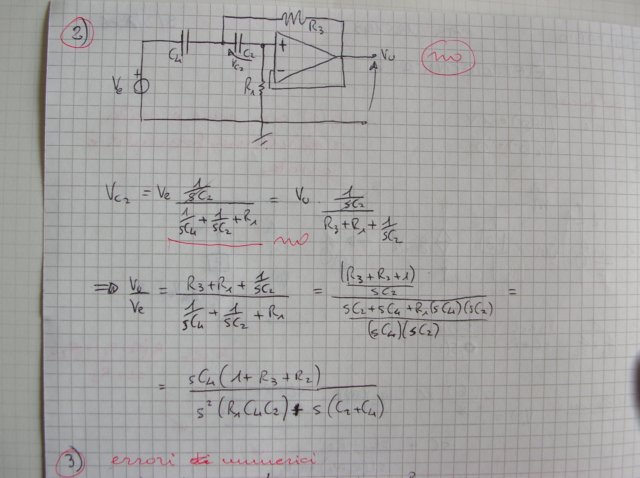 2)
R3
C4
C2
VC2
+
-
R1
+
Ve
Vu
no
VC2 = Ve (1/sC2)/(1/sC4 + 1/sC2 + R1) = Vu (1/sC2)/(R3 + R1 + 1/sC2)
no
=> Vu/Ve = (R3 + R1 + 1/sC2)/(1/sC4 + 1/sC2 + R1) = ((R3 + R2 + 1)/sC2)/((sC2 + sC4 + R1(sC4)(sC2))/((sC4)(sC2))) =
= sC4(1 + R3 + R2)/(s²(R1C4C2) + s(C2 + C4))
3) errori numerici